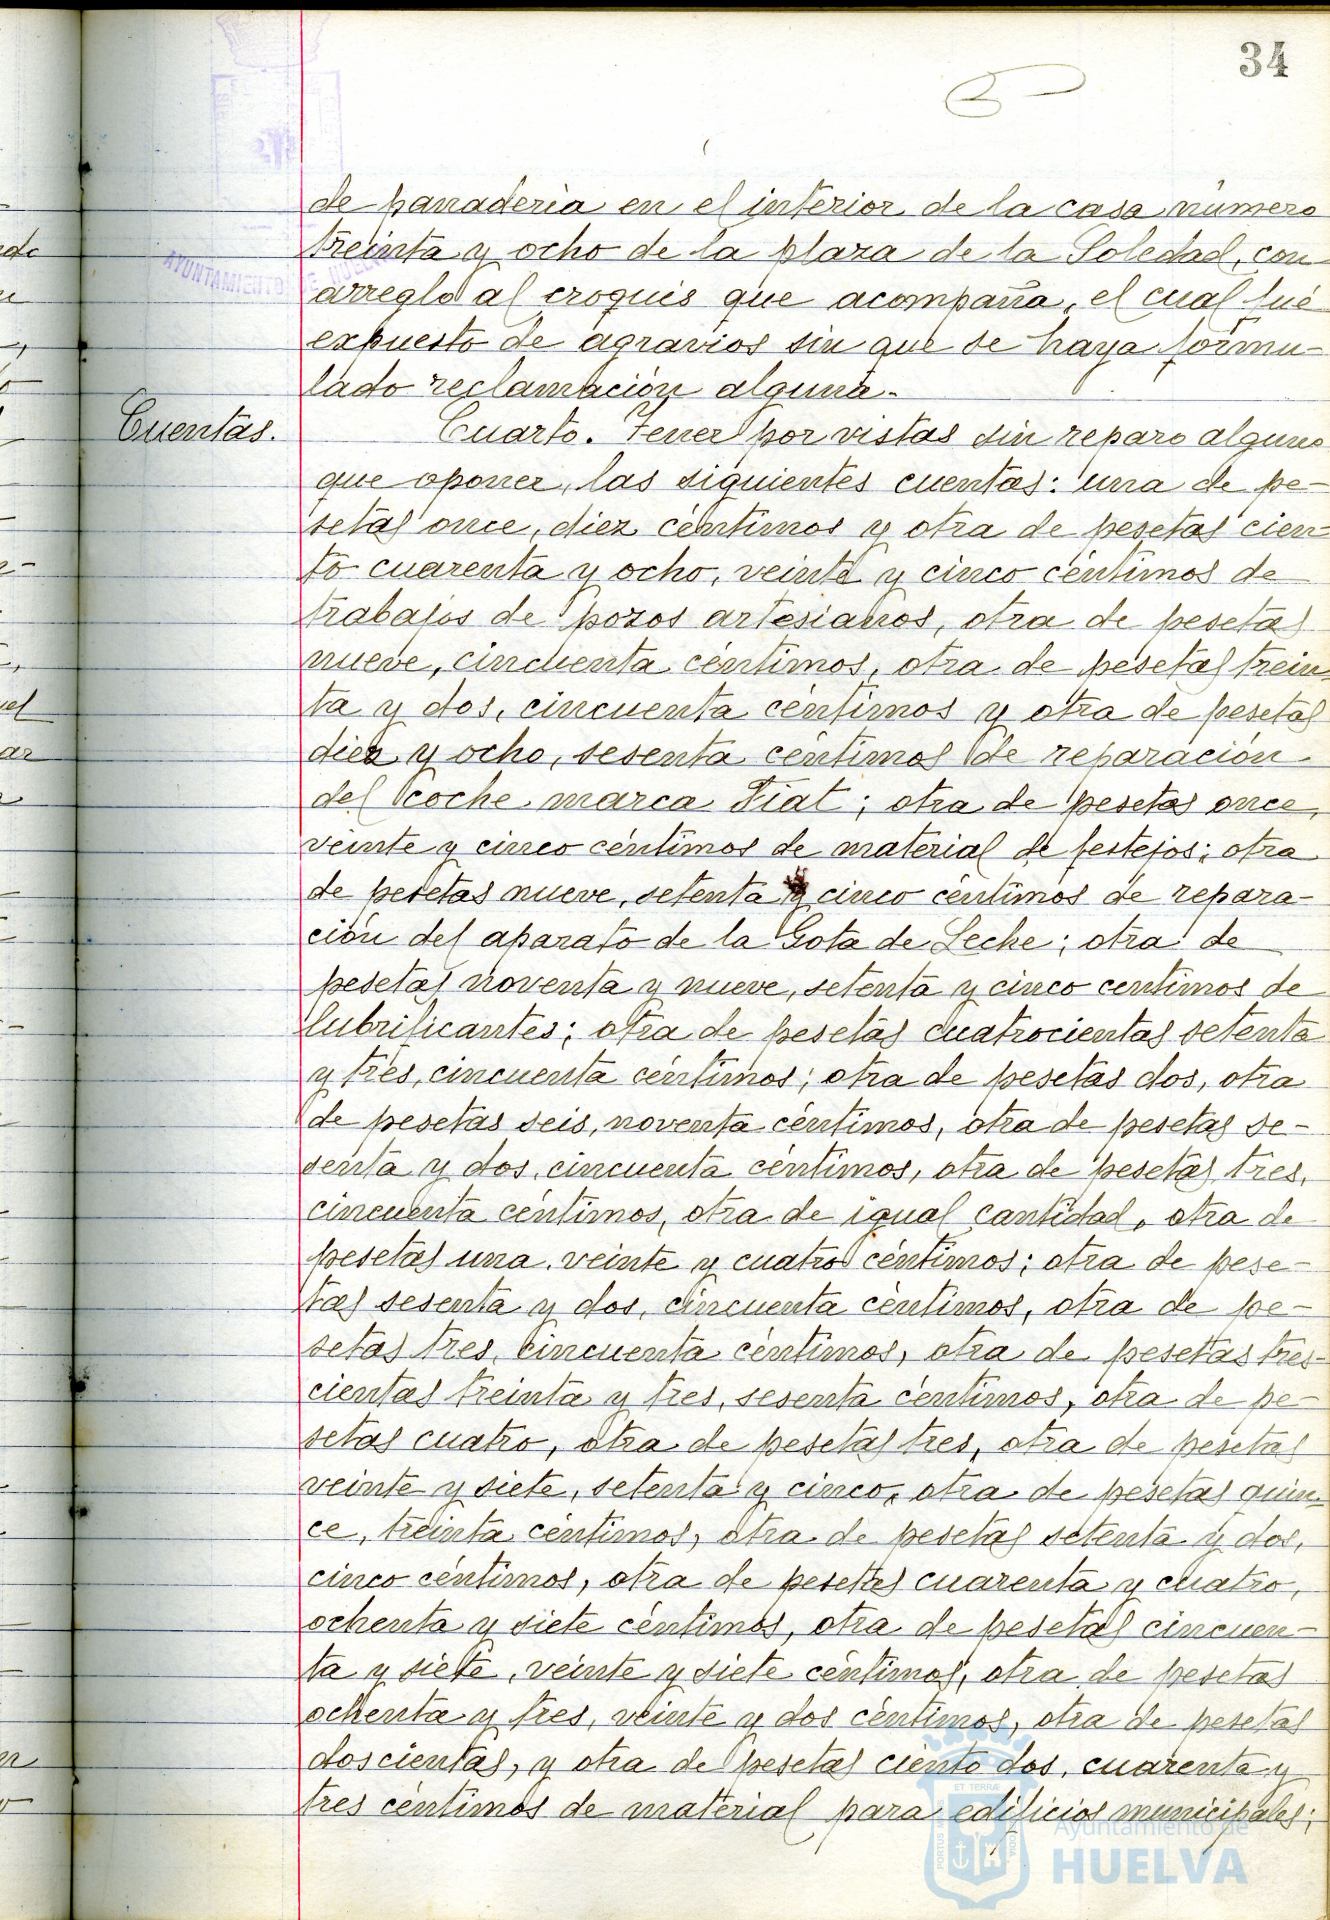 34
de panaderia en el interior de la casa número
treinta y ocho de la plaza de la Soledad, con
arreglo al croquis que acompaña, el cual fué
expuesto de agravios sin que se haya formu-
lado reclamación alguna.
Cuentas.
Cuarto. Tener por vistas sin reparo alguno
que oponer, las siguientes cuentas: una de pe-
setas once, diez céntimos y otra de pesetas cien-
to cuarenta y ocho, veinte y cinco céntimos de
trabajos de pozos artesianos, otra de pesetas
nueve, cincuenta céntimos, otra de pesetas trein-
ta y dos, cincuenta céntimos y otra de pesetas
diez y ocho, sesenta céntimos de reparación
del coche marca Fiat; otra de pesetas once,
veinte y cinco céntimos de material de festejos; otra
de pesetas nueve, setenta y cinco céntimos de repara-
ción del aparato de la Gota de Leche; otra de
pesetas noventa y nueve, setenta y cinco centimos de
lubrificantes; otra de pesetas cuatrocientas setenta
y tres, cincuenta céntimos; otra de pesetas dos, otra
de pesetas seis, noventa céntimos, otra de pesetas se-
senta y dos, cincuenta céntimos, otra de pesetas tres,
cincuenta céntimos, otra de igual cantidad, otra de
pesetas una, veinte y cuatro céntimos; otra de pese-
tas sesenta y dos, cincuenta céntimos, otra de pe-
setas tres, cincuenta céntimos, otra de pesetas tres-
cientas treinta y tres, sesenta céntimos, otra de pe-
setas cuatro, otra de pesetas tres, otra de pesetas
veinte y siete, setenta y cinco, otra de pesetas quin-
ce, treinta céntimos, otra de pesetas setenta y dos,
cinco céntimos, otra de pesetas cuarenta y cuatro,
ochenta y siete céntimos, otra de pesetas cincuen-
ta y siete, veinte y siete céntimos, otra de pesetas
ochenta y tres, veinte y dos céntimos, otra de pesetas
doscientas, y otra de pesetas ciento dos, cuarenta y
tres céntimos de material para edificios municipales;
AYUNTAMIENTO DE HUELVA
Ayuntamiento de
HUELVA